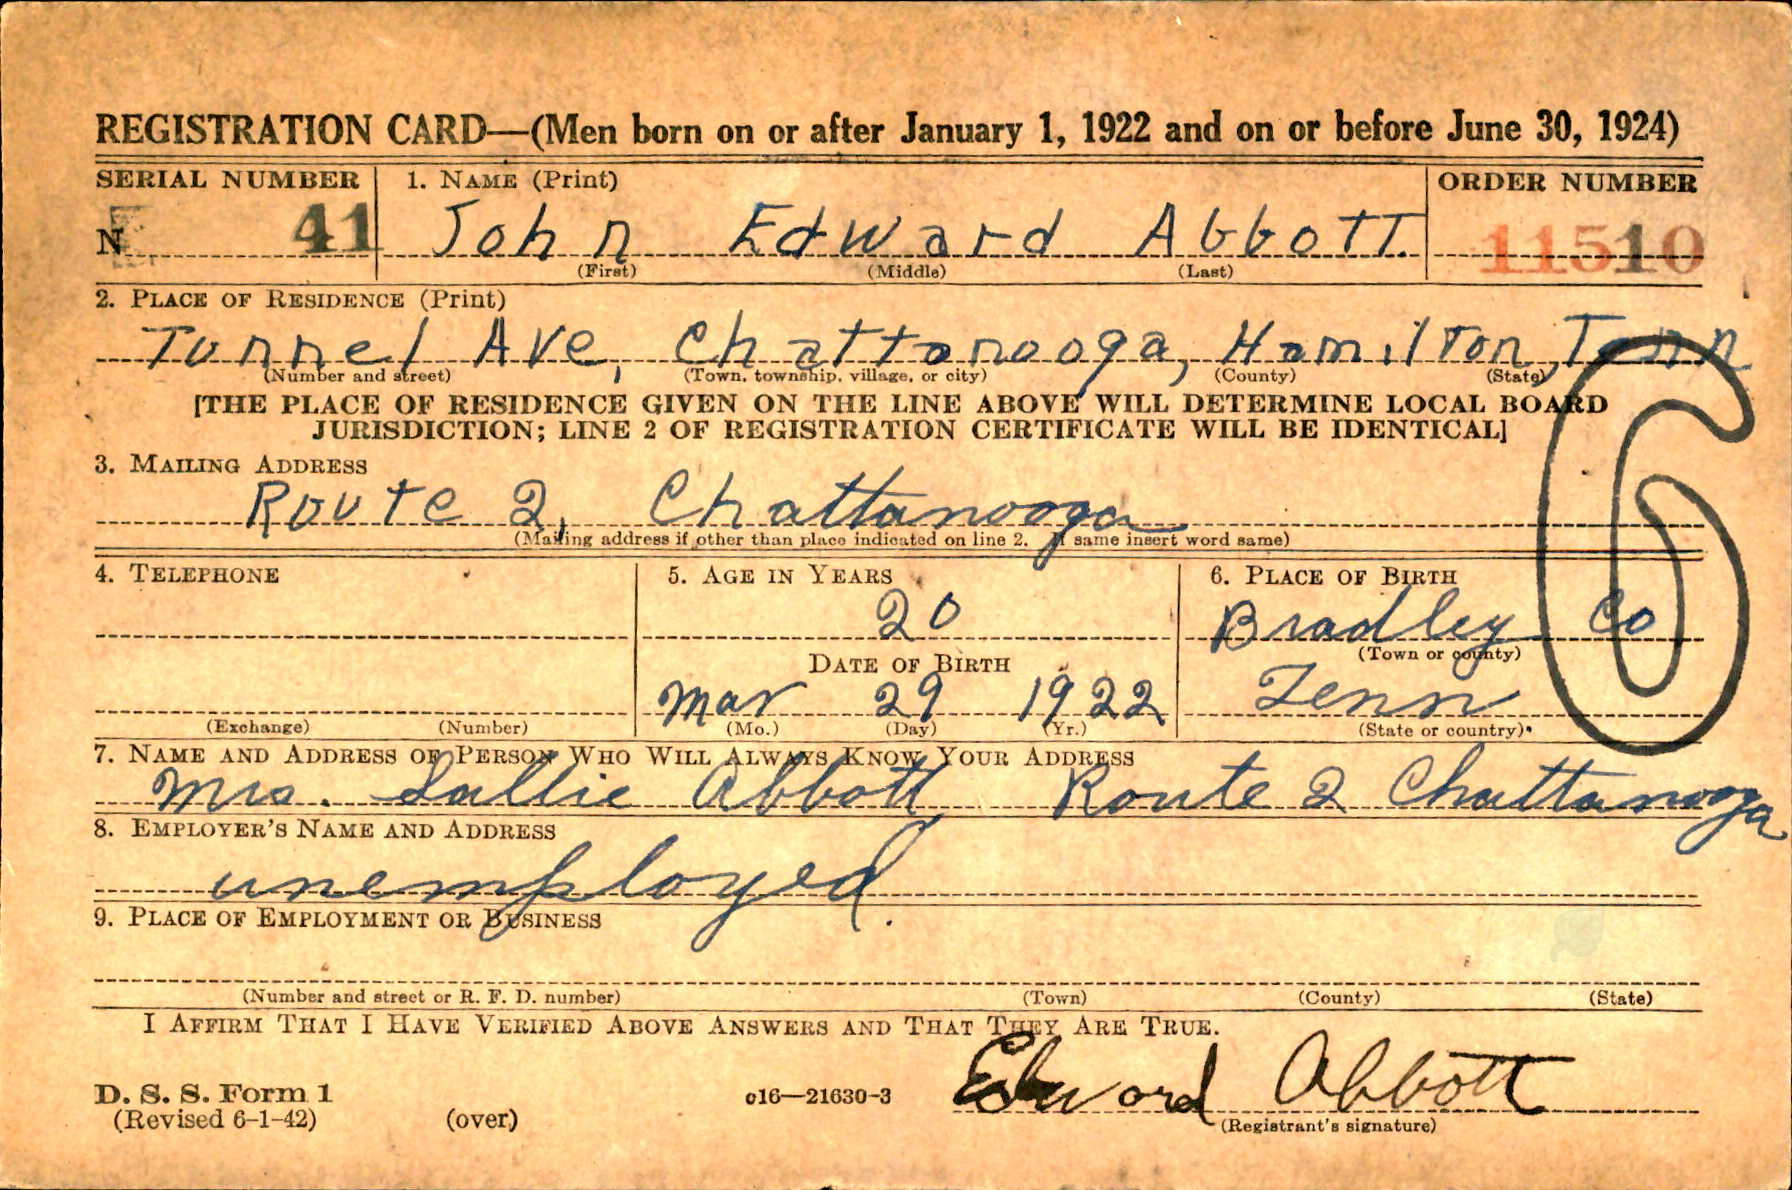 REGISTRATION CARD—(Men born on or after January 1, 1922 and on or before June 30, 1924)
SERIAL NUMBER 1. NAME (Print) ORDER NUMBER
N 41 John Edward Abbott. 11510
(First) (Middle) (Last)
2. PLACE OF RESIDENCE (Print)
Tunnel Ave, Chattanooga, Hamilton, Tenn
(Number and street) (Town, township, village, or city) (County) (State)
[THE PLACE OF RESIDENCE GIVEN ON THE LINE ABOVE WILL DETERMINE LOCAL BOARD
JURISDICTION; LINE 2 OF REGISTRATION CERTIFICATE WILL BE IDENTICAL]
6
3. MAILING ADDRESS
Route 2, Chattanooga
(Mailing address if other than place indicated on line 2. If same insert word same)
4. TELEPHONE 5. AGE IN YEARS 6. PLACE OF BIRTH
20 Bradley Co
(Town or county)
DATE OF BIRTH
Mar 29 1922 Tenn
(Exchange) (Number) (Mo.) (Day) (Yr.) (State or country)
7. NAME AND ADDRESS OF PERSON WHO WILL ALWAYS KNOW YOUR ADDRESS
Mrs. Sallie Abbott Route 2 Chattanooga
8. EMPLOYER'S NAME AND ADDRESS
unemployed.
9. PLACE OF EMPLOYMENT OR BUSINESS
(Number and street or R. F. D. number) (Town) (County) (State)
I AFFIRM THAT I HAVE VERIFIED ABOVE ANSWERS AND THAT THEY ARE TRUE.
D. S. S. Form 1
(Revised 6-1-42) (over) c16—21630-3 Edward Abbott
(Registrant's signature)